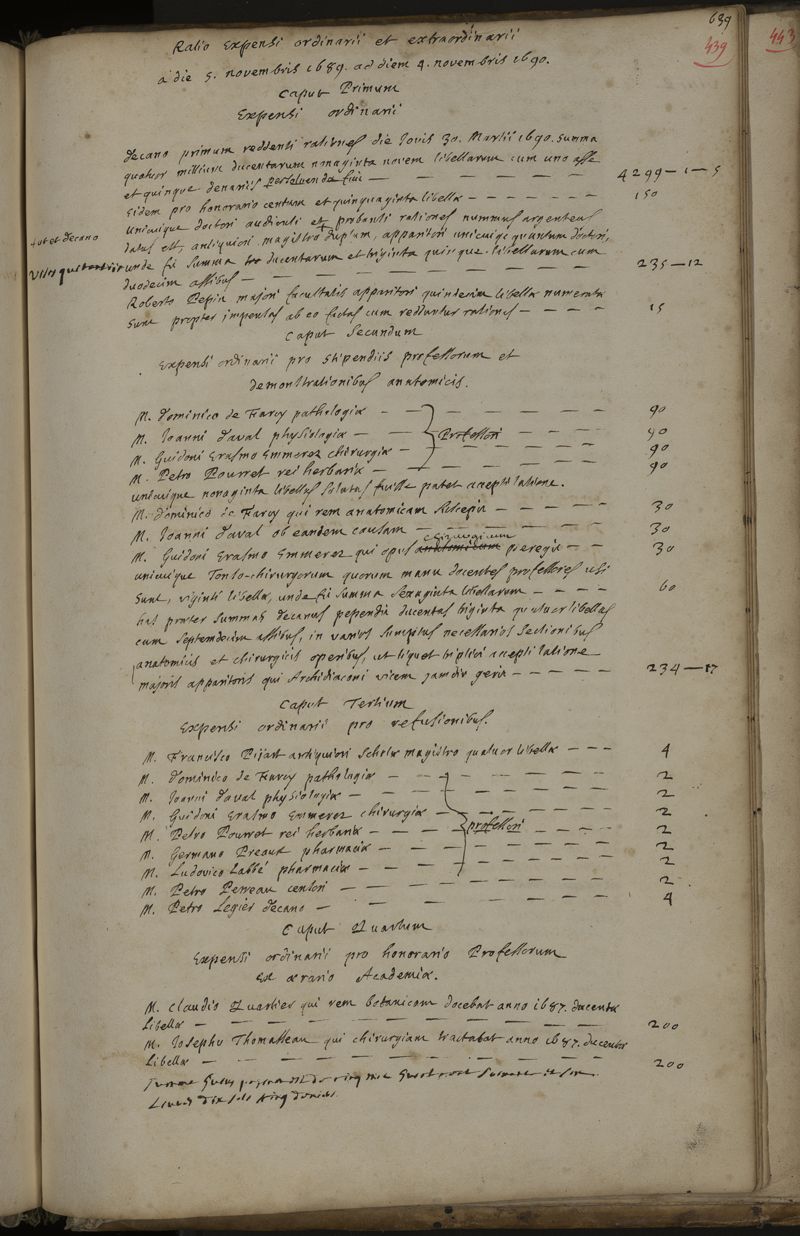 639
439
443
Ratio Expensi ordinarii et extraordinarii
a die 5. novembris 1689. ad diem 4. novembris 1690.
Caput Primum
Expensi ordinarii
Decano primum reddenti rationes die Jovis 30. Martii 1690. summa
quatuor millium ducentarum nonaginta novem libellarum cum uno asse
et quinque denariis persolvenda fuit — — — — — — 4299—1—5
Eidem pro honorario centum et quinquaginta libellæ — — — — — — 150
unicuique doctori audienti et probanti rationes nummus argenteus
datus est, antiquiori magistro duplum, apparitori unicuique quantum doctori,
tot et decano
unde fit summa ducentarum et triginta quinque libellarum cum
duodecim assibus — — — — — — — 235—12
Roberto Pepin majori facultatis apparitori quindecim libellæ numeratæ
sunt propter impensas ab eo factas cum redduntur rationes — — — — 15
Caput Secundum
Expensi ordinarii pro stipendiis professorum et
demonstrationibus anatomicis.
M. Dominico de Farcy pathologiæ — — — — — — 90
M. Joanni Daval physiologiæ — — Professori — — — — 90
M. Guidoni Erasmo Emmerez chirurgiæ — — — — — 90
M. Petro Pourret rei herbariæ — — — — — — 90
unicuique nonaginta libellas solutas fuisse patet accepti latione.
M. Dominico de Farcy qui rem anatomicam suscepit — — — — — 30
M. Joanni Daval ob eandem causam — — — — — — 30
chirurgicum
M. Guidoni Erasmo Emmerez qui opus anatomicum peregit — — 30
unicuique Tonso-chirurgorum quorum manu docentes professores usi
sunt, viginti libellæ, unde fit summa sexaginta libellarum — — — — 60
has præter summas decanus pependit ducentas triginta quatuor libellas
cum septemdecim assibus, in varios sumptus necessarios sectionibus
anatomicis et chirurgicis operibus, ut liquet triplici accepti latione
majoris apparitoris qui Archidiaconi vicem jamdiu gerit — — — — — 234—17
Caput Tertium
Expensi ordinarii pro refusionibus.
M. Francisco Pijart antiquiori scholæ magistro quatuor libellæ — — — 4
M. Dominico de Farcy pathologiæ — — — — — — 2
M. Joanni Daval physiologiæ — — — — — — 2
M. Guidoni Erasmo Emmerez chirurgiæ — — — — — 2
M. Petro Pourret rei herbariæ — — — professori — — — — 2
M. Germano Preaux pharmaciæ — — — — — — 2
M. Ludovico Labbé pharmaciæ — — — — — — 2
M. Petro Perreau censori — — — — — — 2
M. Petro Legier decano — — — — — — 4
Caput Quartum
Expensi ordinarii pro honorario Professorum
ex ærario Academiæ.
M. Claudio Quartier qui rem botanicam docebat anno 1687. ducentæ
libellæ — — — — — — — — 200
M. Josepho Thomasseau qui chirurgiam tractabat anno 1687. ducentæ
libellæ — — — — — — — — 200